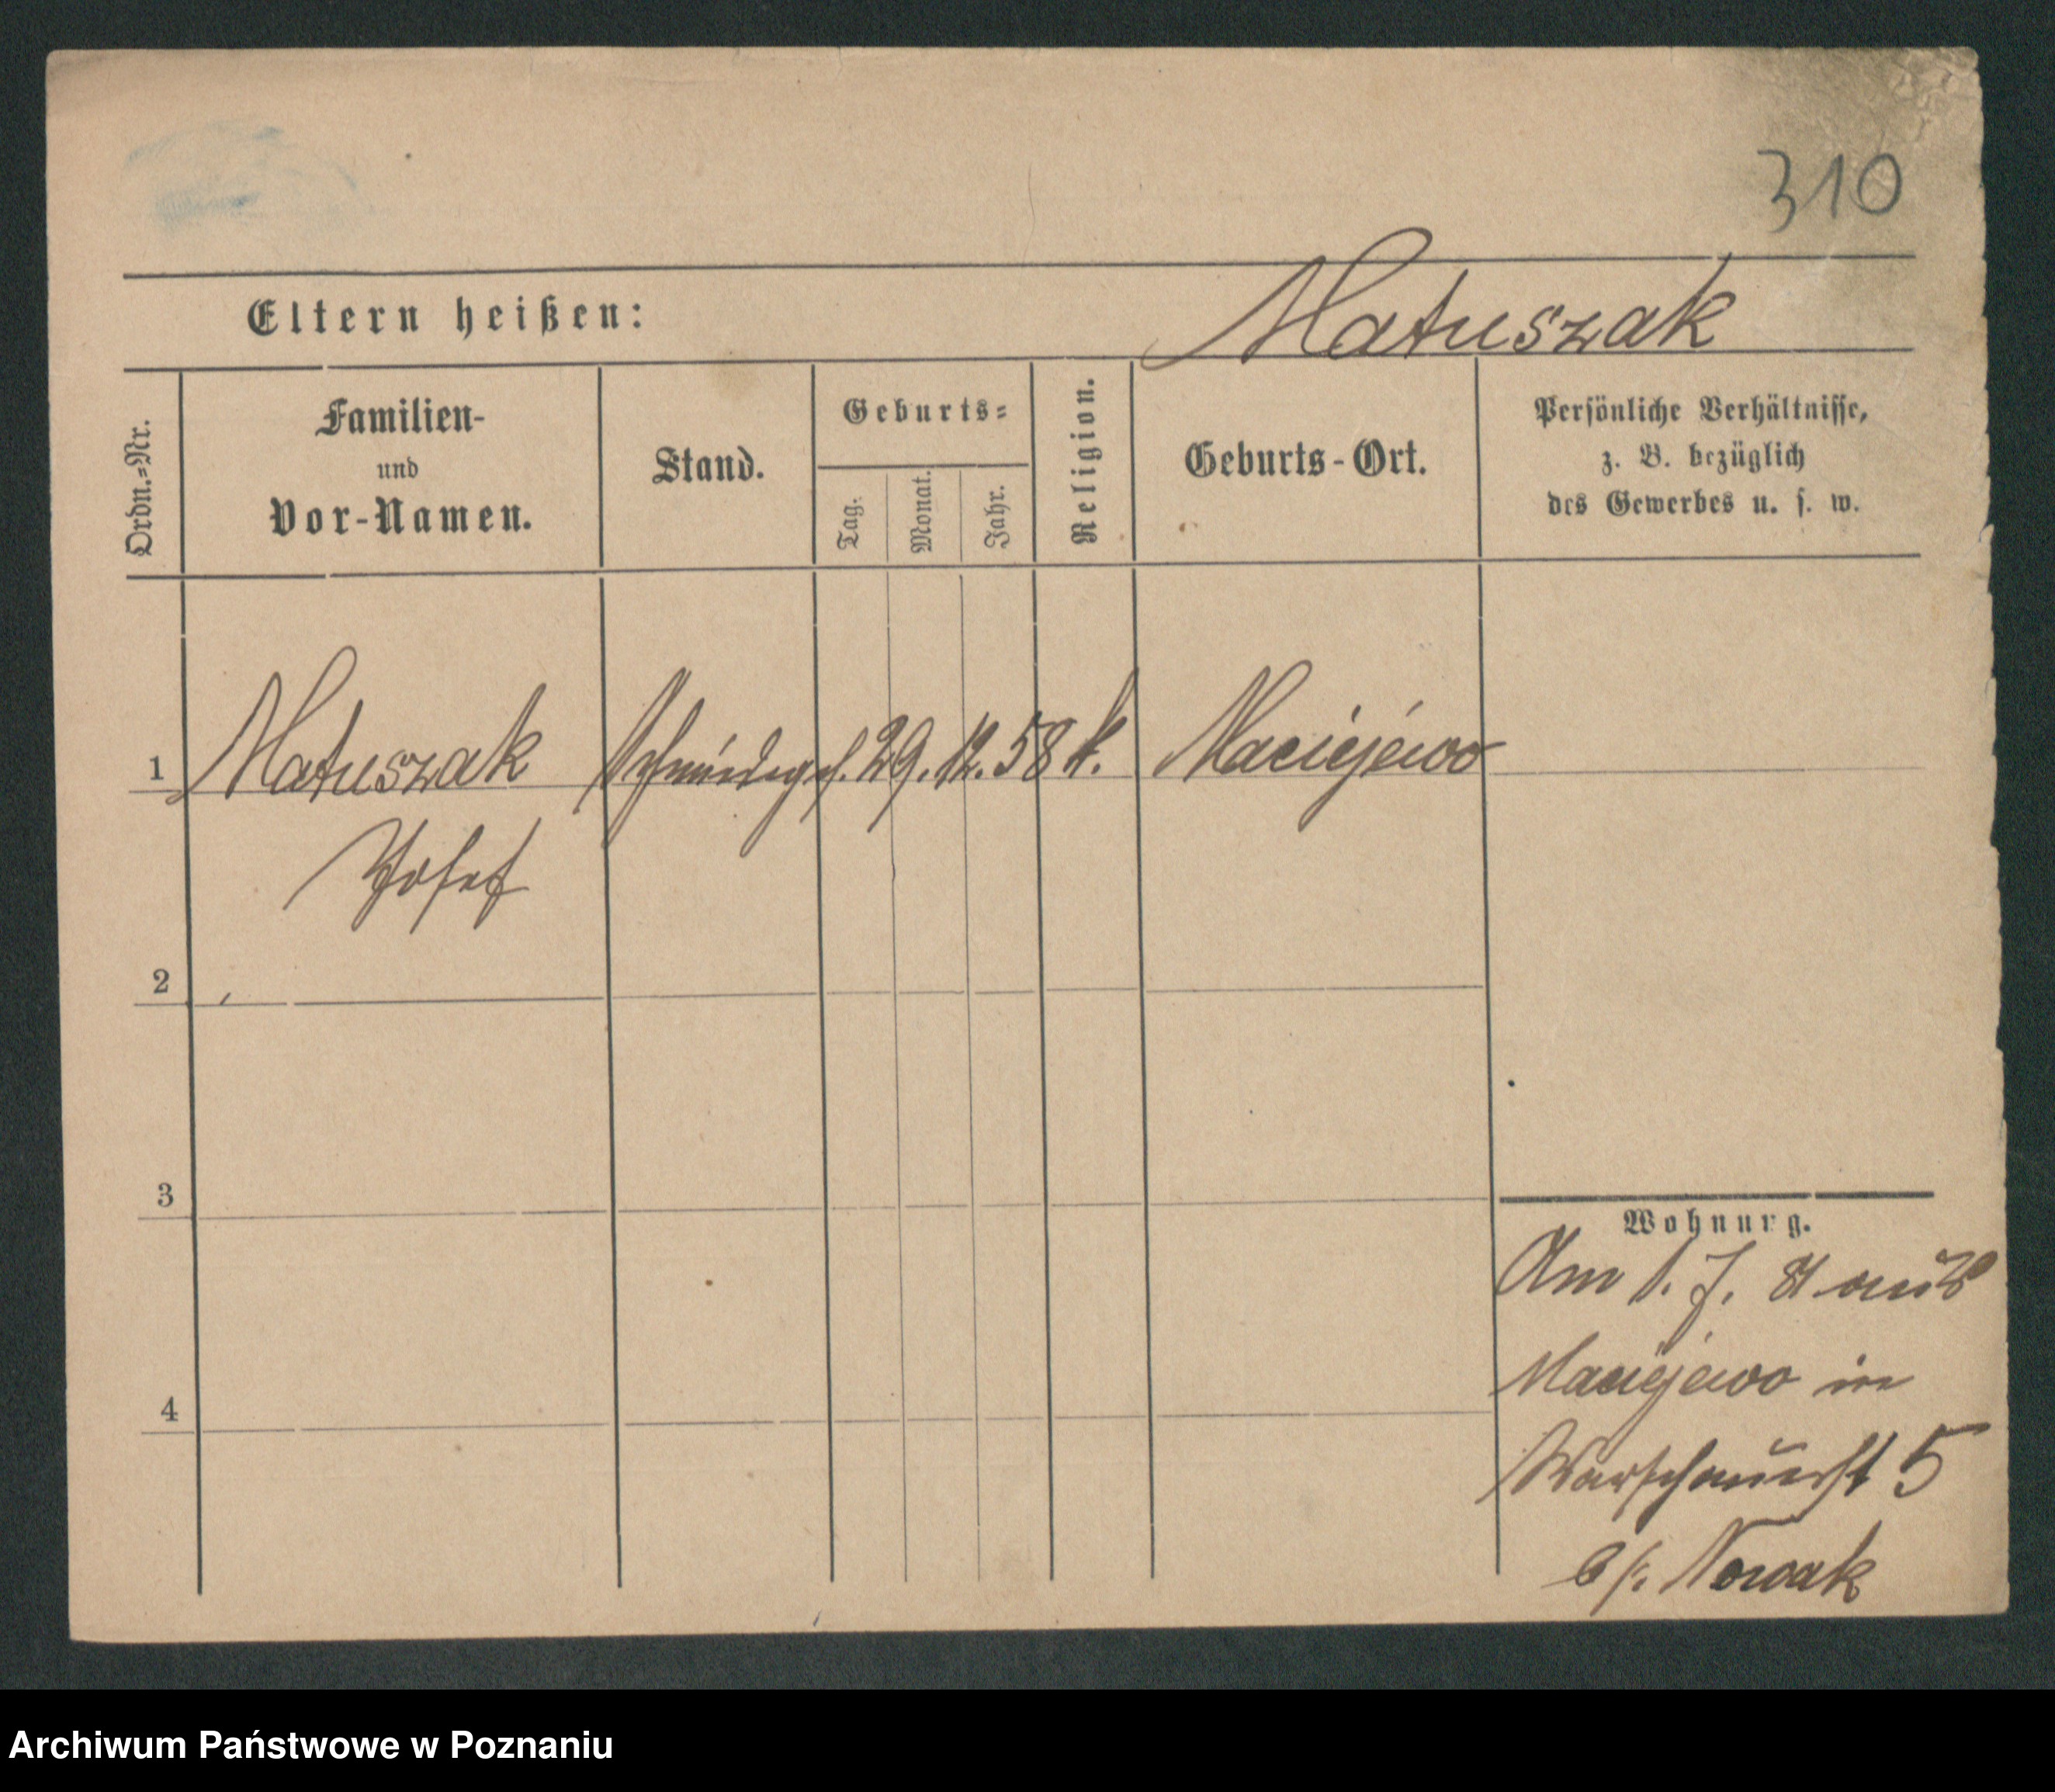 310
Matuszak
Eltern heißen:
Ordn.=Nr.
Familien-
und
Vor-Namen.
Stand.
Geburts=
Tag.
Monat.
Jahr.
Religion.
Geburts-Ort.
Persönliche Verhältnisse,
z. B. bezüglich
des Gewerbes u. s. w.
1 Matuszak Schmiedeges. 29. 12. 58 k. Maciejewo
Josef
2
3
4
Wohnung.
Am 1. 7. 81 aus
Maciejewo in
Warschauerst 5
b/. Nowak
Archiwum Państwowe w Poznaniu